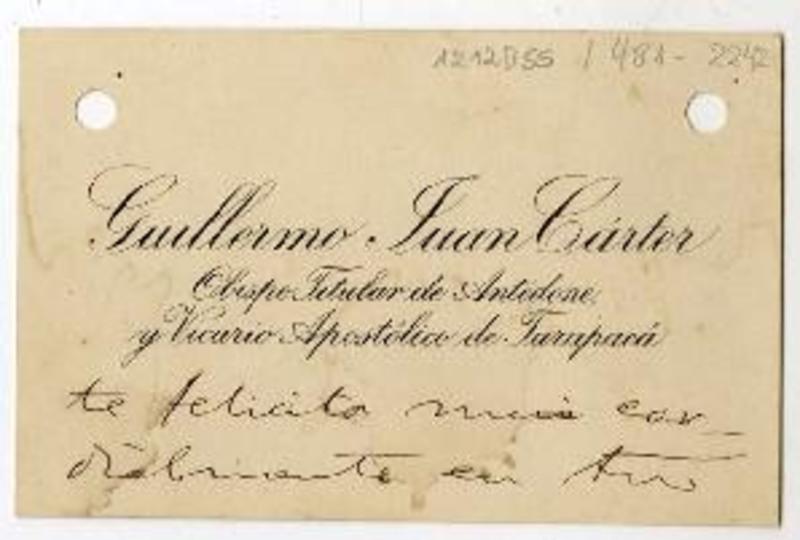 1212DSS / 481- 2242
Guillermo Juan Cárter
Obispo Titular de Antedone
y Vicario Apostólico de Tarapacá
te felicita mui cor_
dialmente en tus